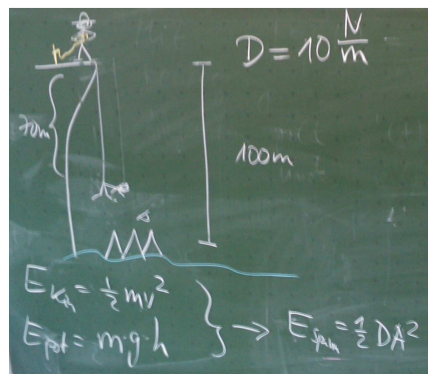 D = 10 N/m
70m
100m
E_kin = 1/2 mv²
E_pot = m·g·h
→ E_spann = 1/2 DA²